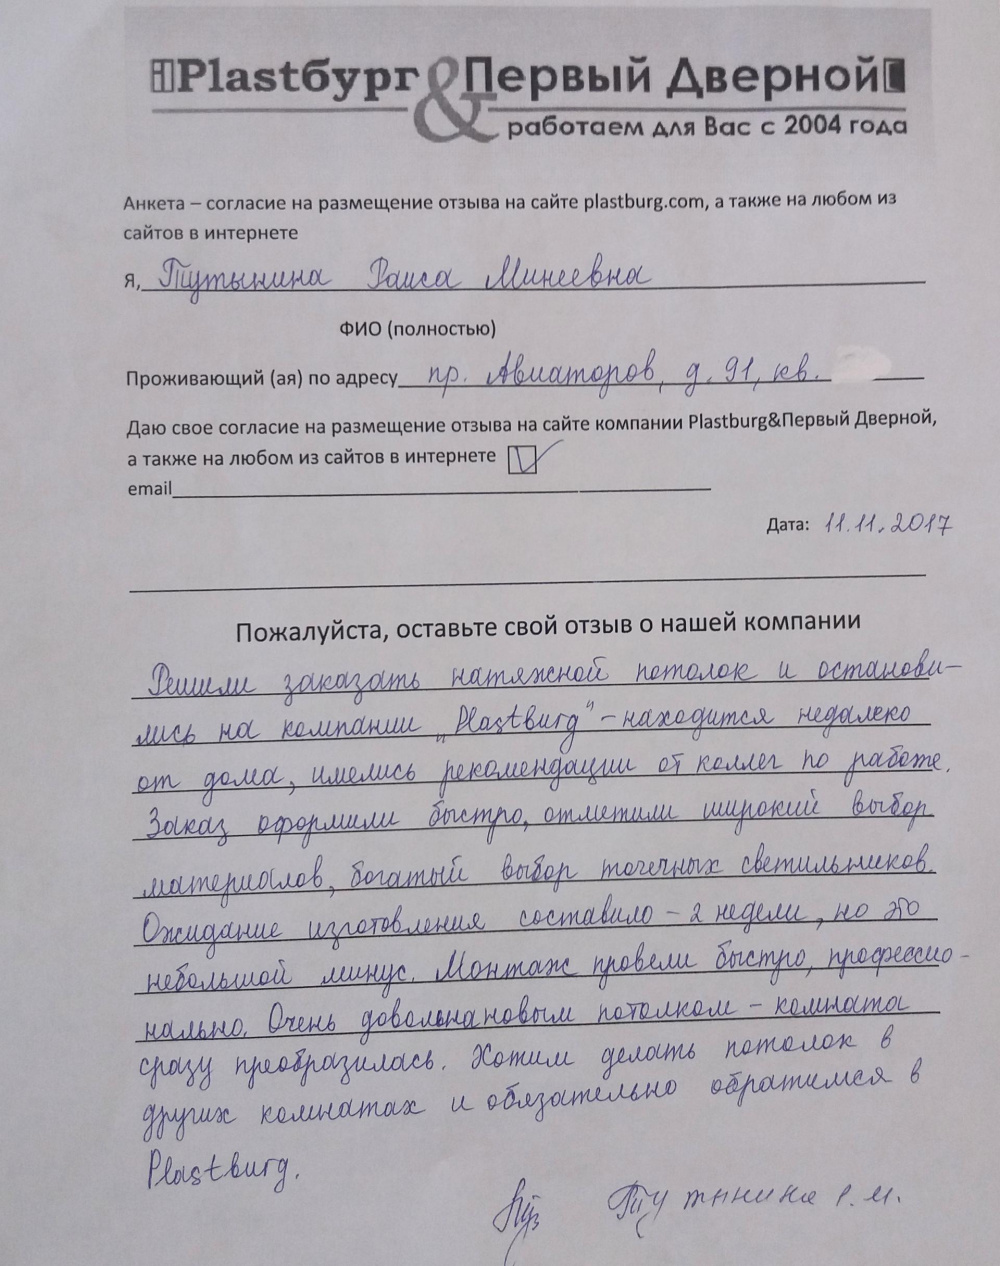 Plastбург & Первый Дверной
работаем для Вас с 2004 года
Анкета – согласие на размещение отзыва на сайте plastburg.com, а также на любом из
сайтов в интернете
Я, Тутынина Раиса Минеевна
ФИО (полностью)
Проживающий (ая) по адресу пр. Авиаторов, д. 91, кв.
Даю свое согласие на размещение отзыва на сайте компании Plastburg&Первый Дверной,
а также на любом из сайтов в интернете
email
Дата: 11.11.2017
Пожалуйста, оставьте свой отзыв о нашей компании
Решили заказать натяжной потолок и останови-
лись на компании „Plastburg" – находится недалеко
от дома, имелись рекомендации от коллег по работе.
Заказ оформили быстро, отметили широкий выбор
материалов, богатый выбор точечных светильников.
Ожидание изготовления составило – 2 недели, но это
небольшой минус. Монтаж провели быстро, профессио-
нально. Очень довольна новым потолком – комната
сразу преобразилась. Хотим делать потолок в
других комнатах и обязательно обратимся в
Plastburg.
Тутынина Р.М.